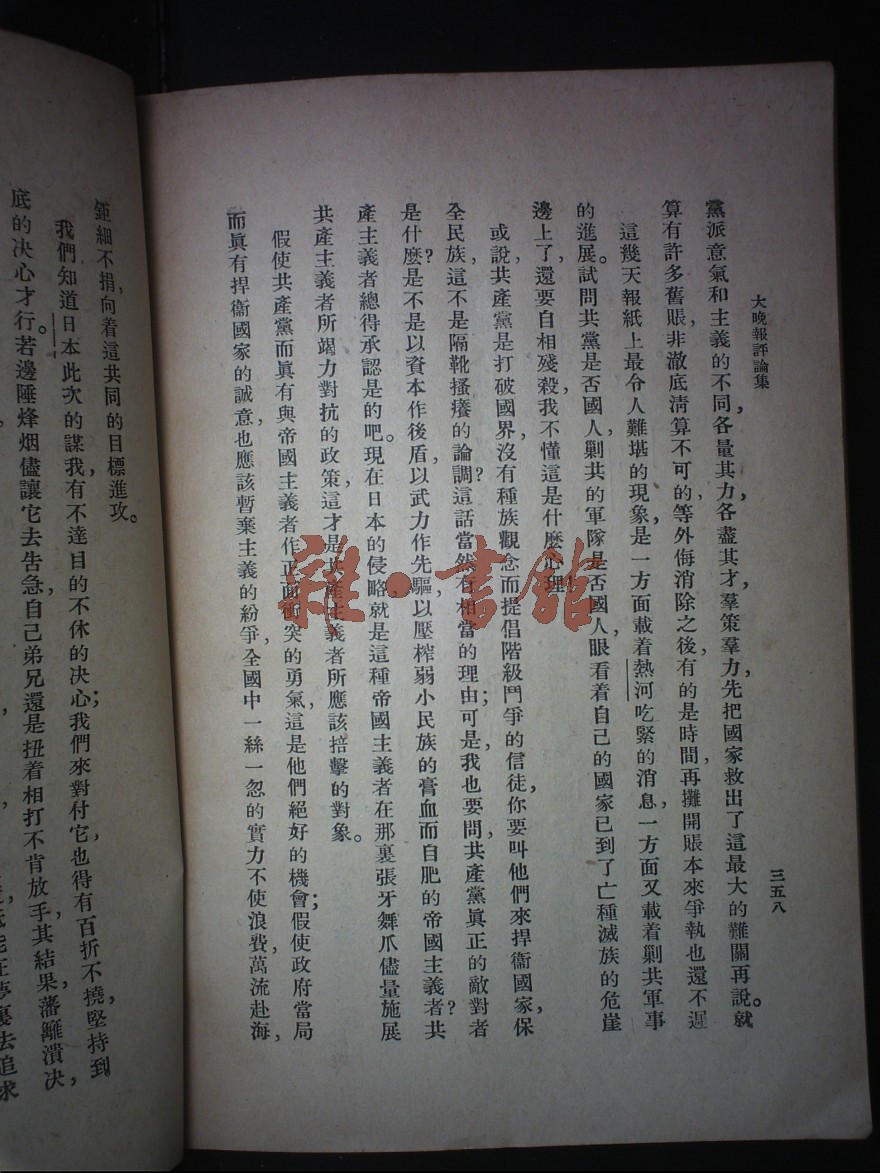 大晚報評論集
三五八
黨派意氣和主義的不同，各量其力，各盡其才，羣策羣力，先把國家救出了這最大的難關再說。就
算有許多舊賬，非澈底清算不可的，等外侮消除之後，有的是時間，再攤開賬本來爭執也還不遲
這幾天報紙上最令人難堪的現象，是一方面載着熱河吃緊的消息，一方面又載着剿共軍事
的進展。試問共黨是否國人，剿共的軍隊是否國人，眼看着自己的國家已到了亡種滅族的危崖
邊上了，還要自相殘殺，我不懂這是什麼心理
或說共產黨是打破國界，沒有種族觀念而提倡階級鬥爭的信徒，你要叫他們來捍衞國家，保
全民族，這不是隔靴搔癢的論調？這話當然有相當的理由；可是，我也要問，共產黨眞正的敵對者
是什麼？是不是以資本作後盾，以武力作先驅，以壓榨弱小民族的膏血而自肥的帝國主義者？共
產主義者總得承認是的吧。現在日本的侵略，就是這種帝國主義者在那裏張牙舞爪，儘量施展
共產主義者所竭力對抗的政策，這才是共產主義者所應該掊擊的對象。
假使共產黨而眞有與帝國主義者作正面衝突的勇氣，這是他們絕好的機會；假使政府當局
而眞有捍衞國家的誠意，也應該暫棄主義的紛爭，全國中一絲一忽的實力不使浪費，萬流赴海，
鉅細不捐，向着這共同的目標進攻。
我們知道日本此次的謀我，有不達目的不休的決心；我們來對付它，也得有百折不撓，堅持到
底的決心才行。若邊陲烽烟儘讓它去告急，自己弟兄還是扭着相打不肯放手，其結果，藩籬潰決，
夢裏去追求
雜·書館